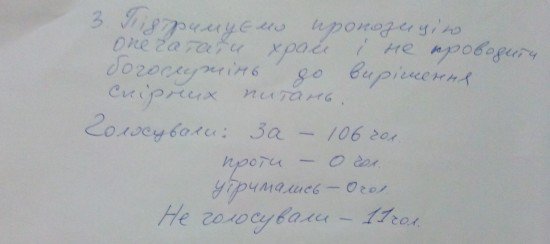 3. Підтримуємо пропозицію
опечатати храм і не проводити
богослужінь до вирішення
спірних питань.
Голосували: За – 106 чол.
проти – 0 чол.
утримались – 0 чол
Не голосували – 11 чол.